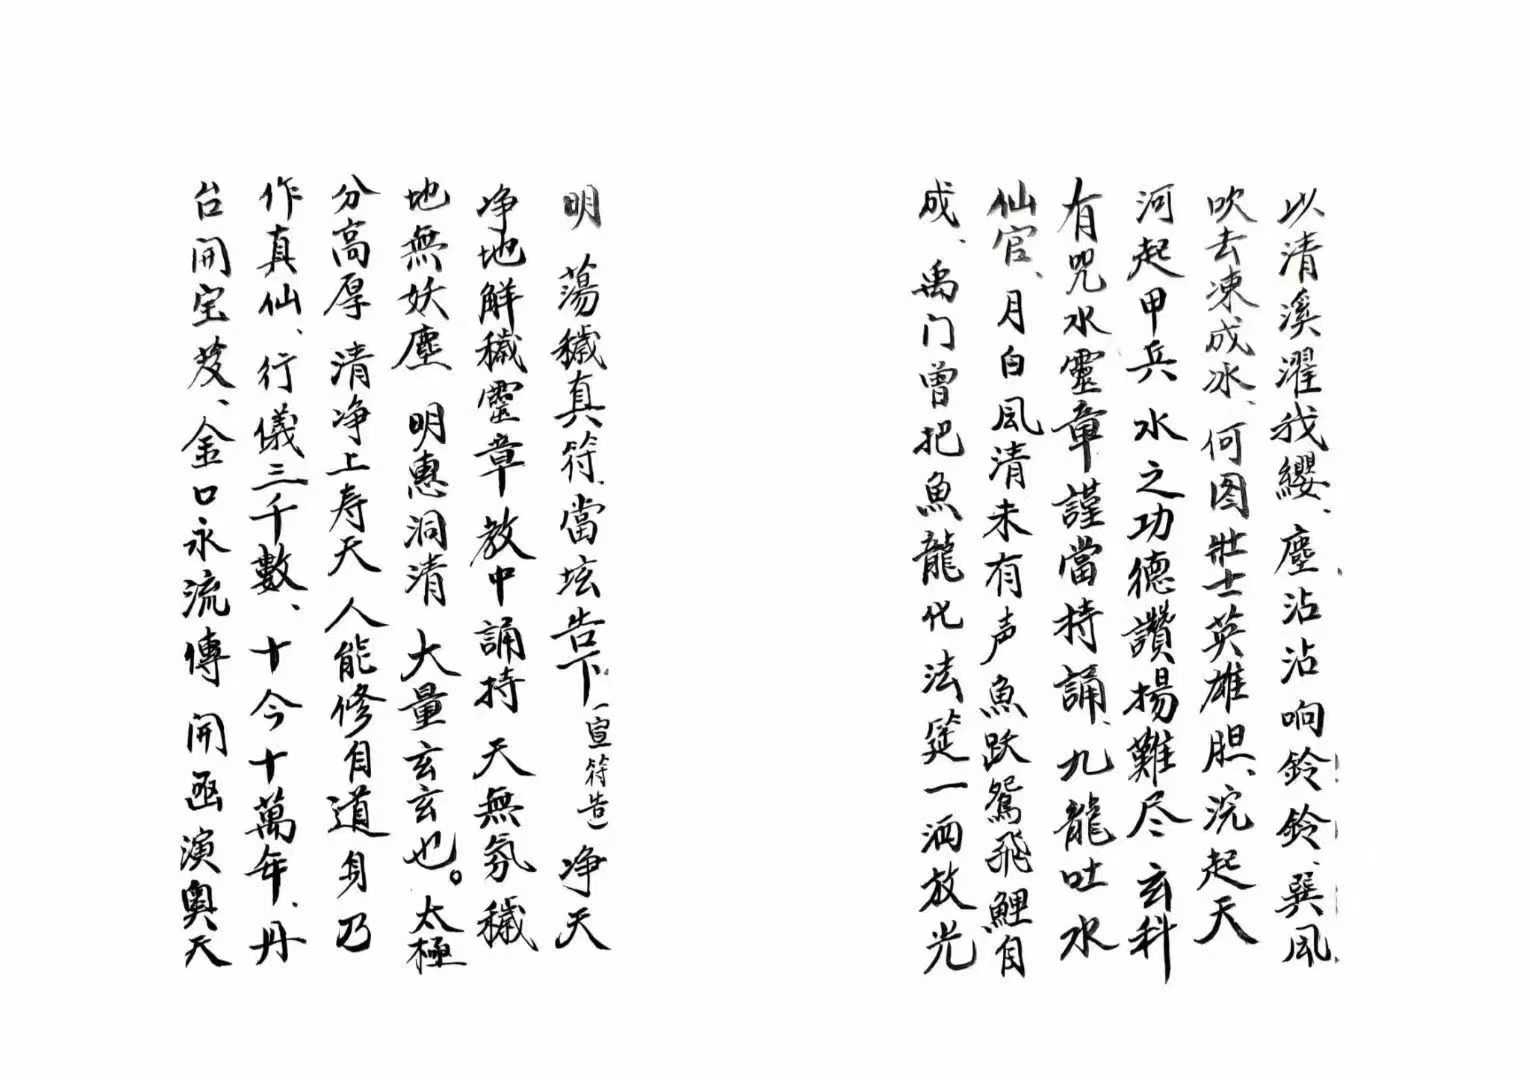 以清溪濯我纓、塵沾沾响鈴鈴、巽风
吹去凍成冰、何图壯士英雄胆、浣起天
河起甲兵 水之功德讚揚難尽 玄科
有咒水靈章謹當持誦、九龍吐水
仙官、月白風清未有声 魚跃鴛飛鯉自
成、禹门曾把魚龍化 法筵一洒放光
明 蕩穢真符、當坛告下(宣符告) 净天
净地解穢靈章 教中誦持 天無氛穢
地無妖塵 明惠洞清 大量玄玄也。太極
分高厚 清净上寿天 人能修自道 身乃
作真仙、行儀三千數、十今十萬年、丹
台開宝芨、金口永流傳 開函演奥天